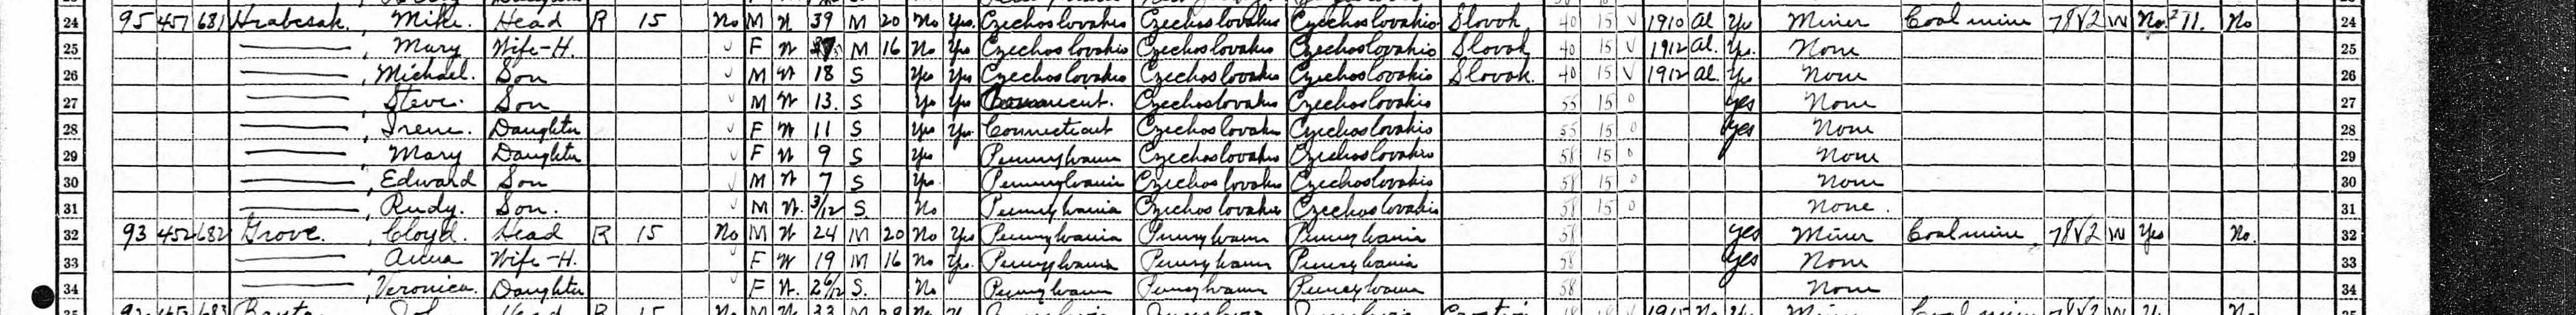 24 95 451 681 Hrabcsak, Mike. Head R 15 No M W 39 M 20 No Yes. Czechoslovakia Czechoslovakia Czechoslovakia Slovak 40 15 V 1910 Al Yes Miner Coal mine 78V2 W No 11. No 24
25 , Mary Wife-H. F W M 16 No Yes Czechoslovakia Czechoslovakia Czechoslovakia Slovak 40 15 V 1912 Al. Yes. None 25
26 , Michael. Son M W 18 S Yes Yes Czechoslovakia Czechoslovakia Czechoslovakia Slovak. 40 15 V 1912 Al. Yes None 26
27 , Steve. Son M W 13. S Yes Yes Czechoslovakia Czechoslovakia 55 15 0 yes None 27
28 , Irene. Daughter F W 11 S Yes Yes Connecticut Czechoslovakia Czechoslovakia 55 15 0 yes None 28
29 , Mary Daughter F W 9 S Yes Pennsylvania Czechoslovakia Czechoslovakia 58 15 0 None 29
30 , Edward Son M W 7 S Yes Pennsylvania Czechoslovakia Czechoslovakia 58 15 0 None 30
31 , Rudy. Son. M W. 3/12 S. No Pennsylvania Czechoslovakia Czechoslovakia 58 15 0 None. 31
32 93 452 682 Grove. , Cloyd. Head R 15 No M W 24 M 20 No Yes Pennsylvania Pennsylvania Pennsylvania 58 yes Miner Coal mine 78V2 W Yes No. 32
33 , Anna Wife-H. F W 19 M 16 No Yes. Pennsylvania Pennsylvania Pennsylvania 58 yes None 33
34 , Veronica. Daughter F W. 2 6/12 S. No Pennsylvania Pennsylvania Pennsylvania 58 None 34